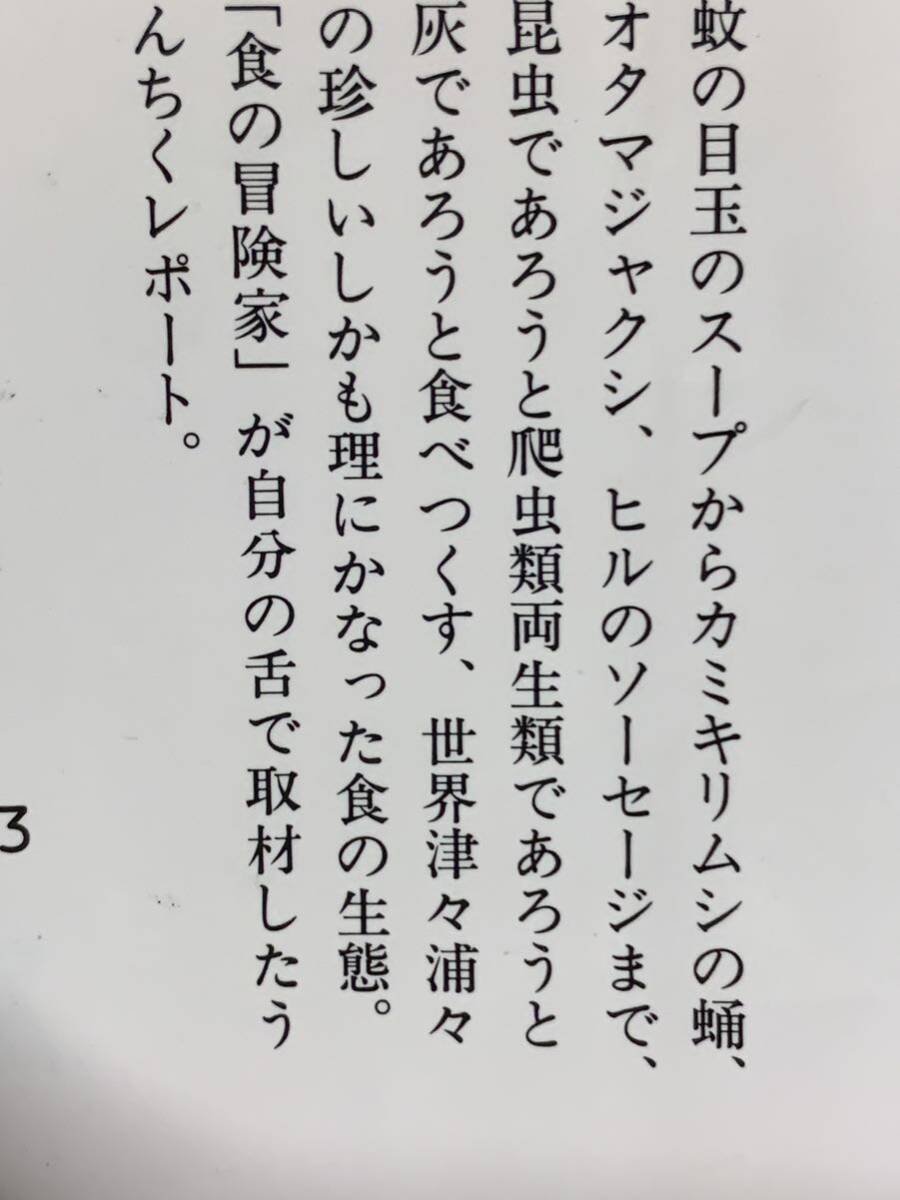 蚊の目玉のスープからカミキリムシの蛹、
オタマジャクシ、ヒルのソーセージまで、
昆虫であろうと爬虫類両生類であろうと
灰であろうと食べつくす、世界津々浦々
の珍しいしかも理にかなった食の生態。
「食の冒険家」が自分の舌で取材したう
んちくレポート。
3